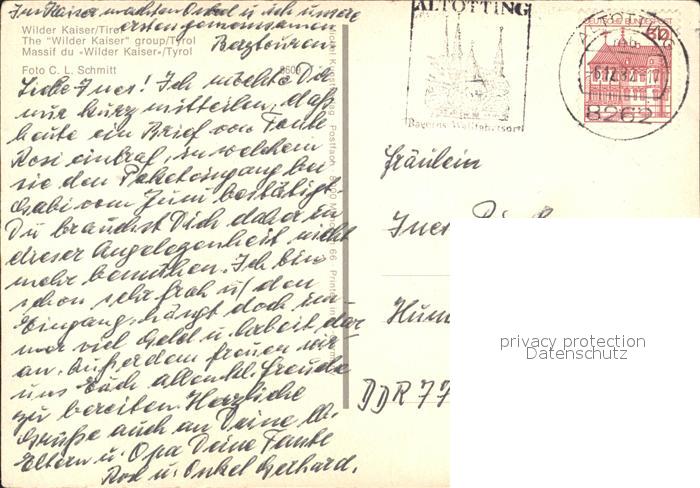 Im Kaiser machten Onkel u. ich unsere
ersten gemeinsamen
Bergtouren
Wilder Kaiser/Tirol
The "Wilder Kaiser" group/Tyrol
Massif du «Wilder Kaiser»/Tyrol
Foto C. L. Schmitt
Liebe Ines! Ich möchte Dir
nur kurz mitteilen, daß
heute ein Brief von Tante
Rosi eintraf, in welchem
sie den Paketeingang bei
Gabi vom Juni bestätigt.
Du brauchst Dich daher in
dieser Angelegenheit nicht
mehr bemühen. Ich bin
schon sehr froh ü/ den
Eingang, hängt doch im-
mer viel Geld u. Arbeit dar
an. Außerdem freuen wir
uns Euch allenthl. Freude
zu bereiten. Herzliche
Grüße auch an Deine lb.
Eltern u. Opa Deine Tante
Rosl u. Onkel Gerhard.
ALTÖTTING
Bayerns Wallfahrtsort
DEUTSCHE BUNDESPOST
60
ALTÖTTING
8262
Fräulein
Ines
Hum
DDR 77
privacy protection
Datenschutz